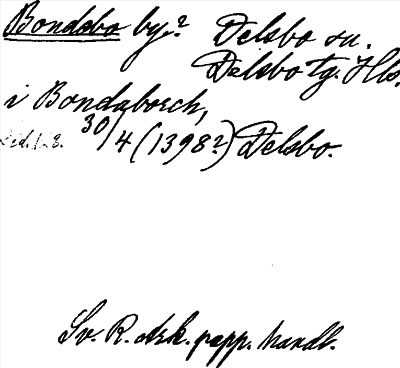 Bondebo by? Delsbo sn.
Delsbo tg. Hls.
i Bondaborch,
30/4 (1398?) Delsbo.
Sv. R. Ark. papp. handl.